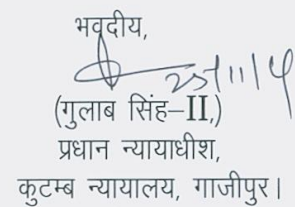 भवदीय,
(गुलाब सिंह–II,)
प्रधान न्यायाधीश,
कुटम्ब न्यायालय, गाजीपुर।